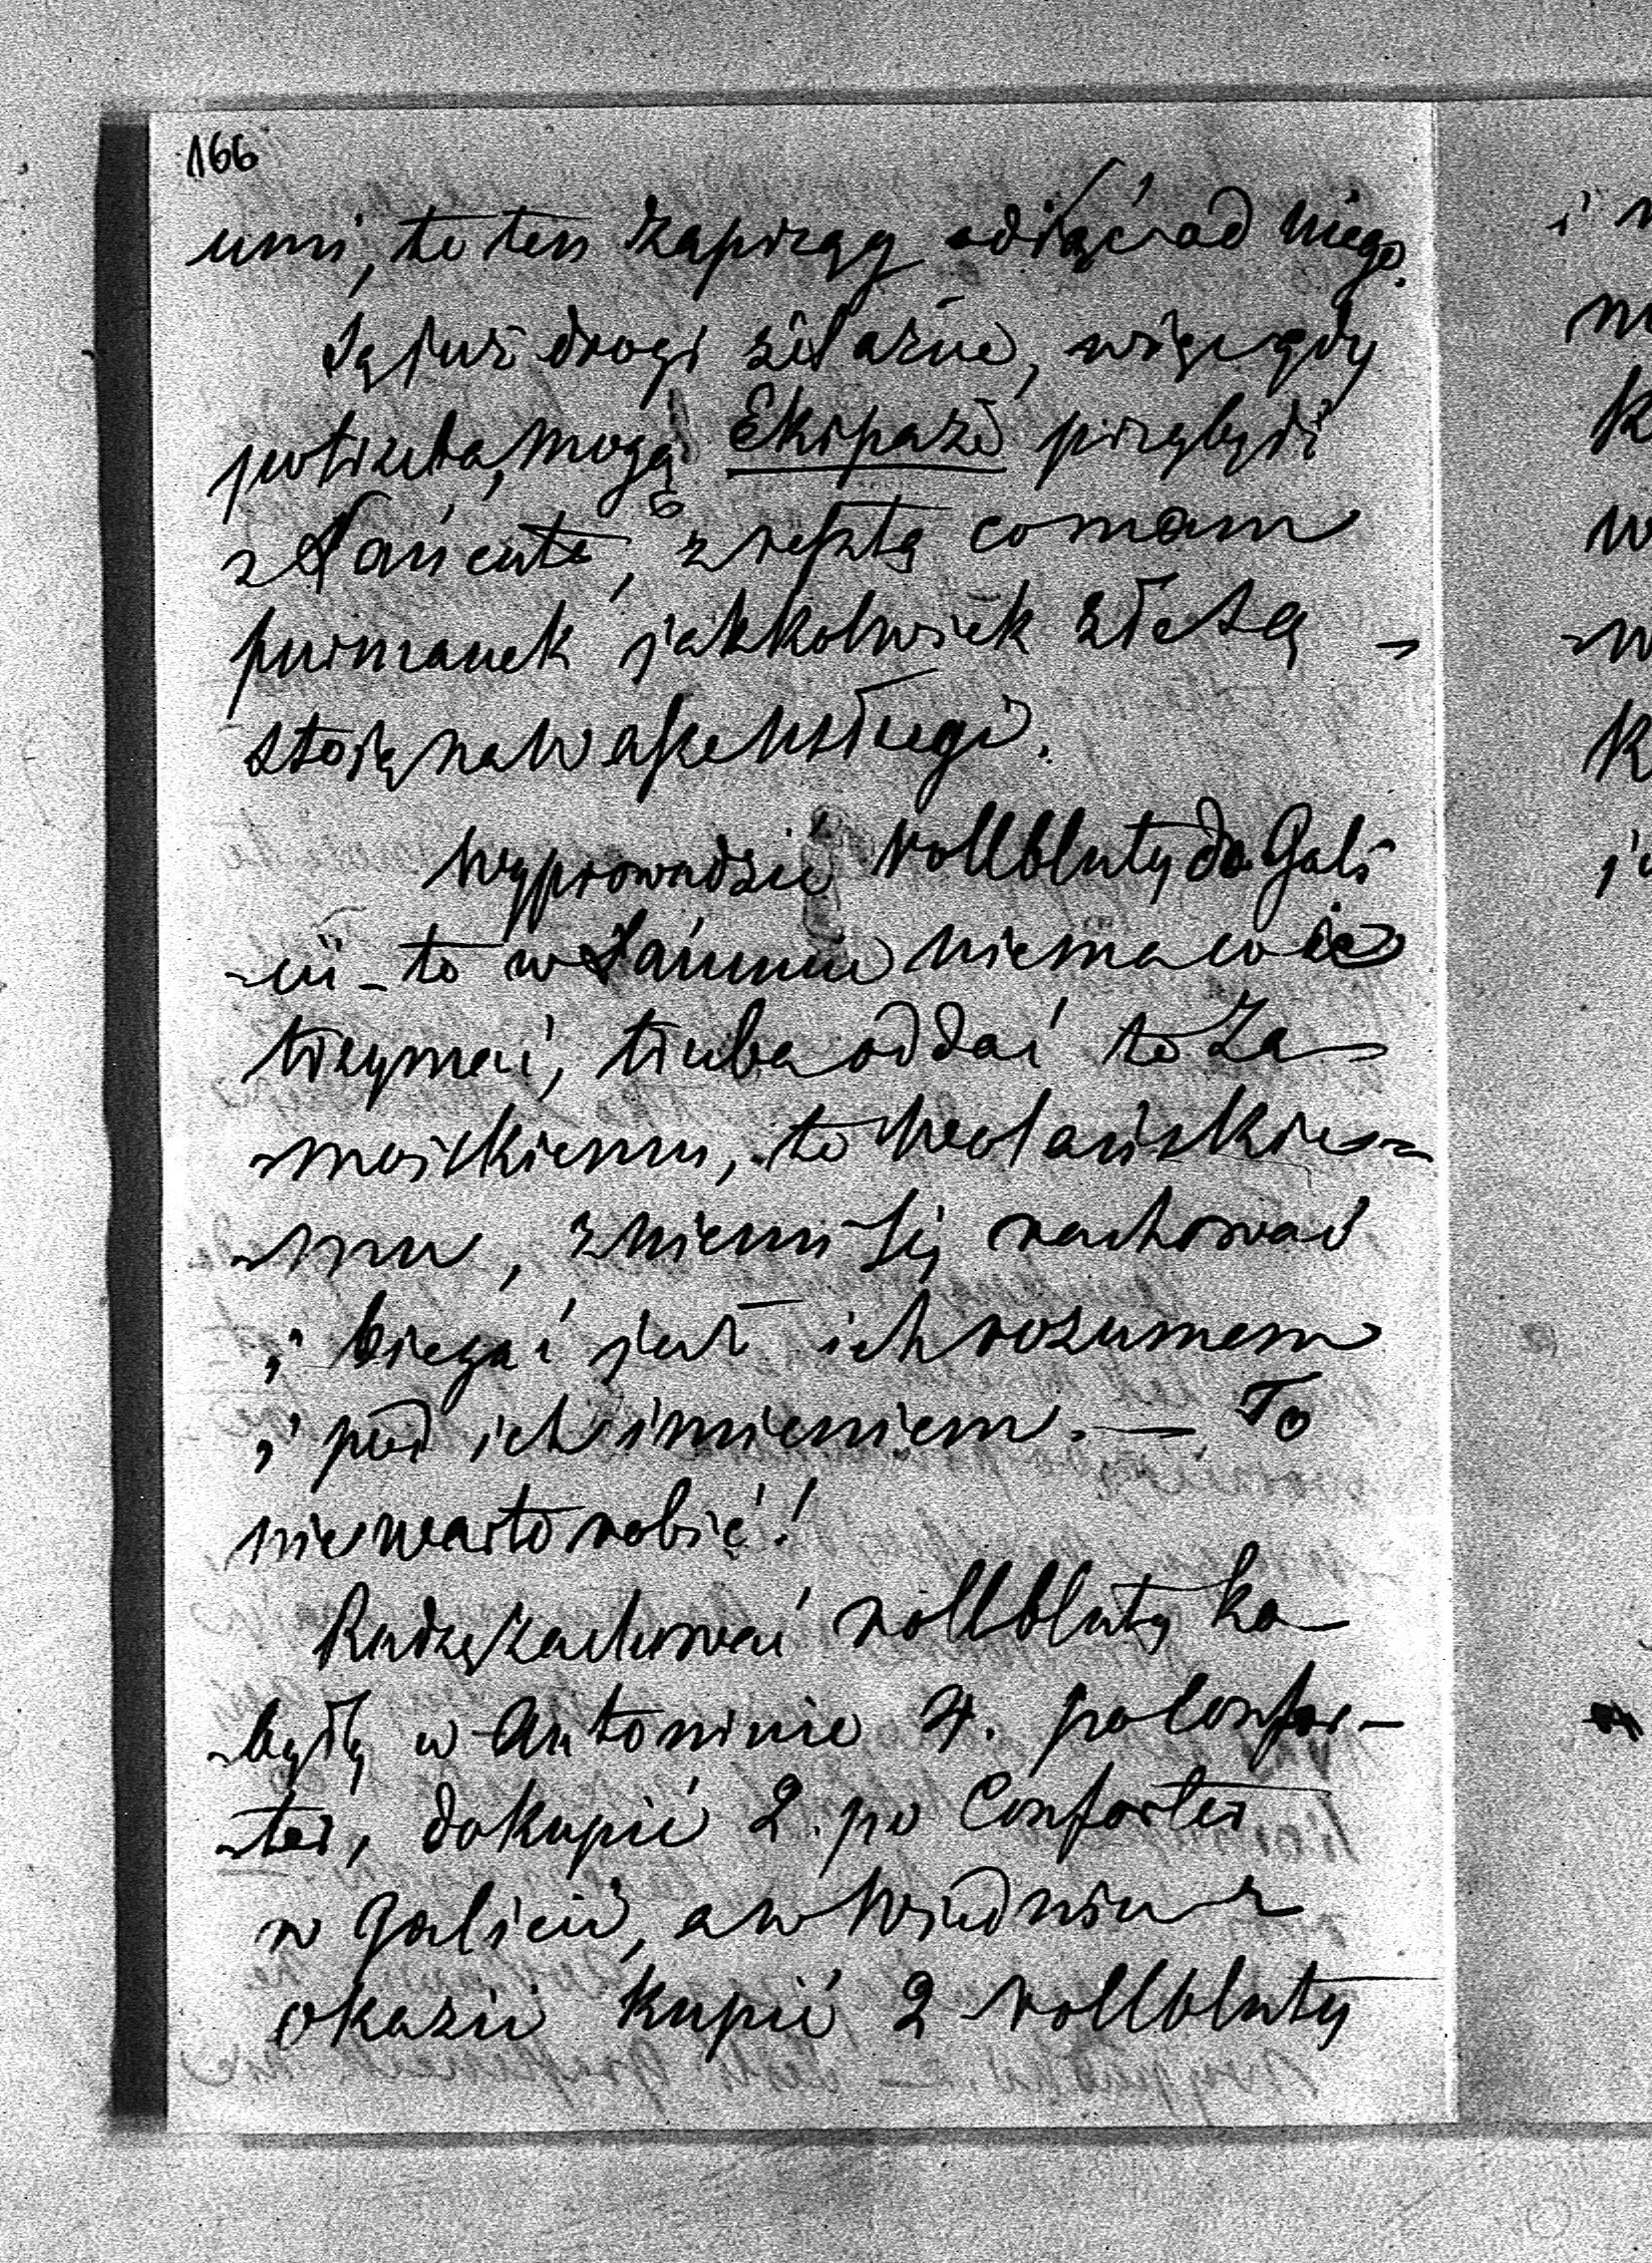 166
umi, to ten zaprząg odjąć od niego.
Są już drogi żelazne, więc gdy
potrzeba, mogą Ekipaże przybyć
z Łańcuta, zresztą co mam
furmanek jakkolwiek złe są –
stoją na Wasze usługi.
Wyprowadzić vollbluty do Gali
-cii – to w Łańcucie niema co ich
trzymać, trzeba oddać to Za-
-mojskiemu, to Wolańskie-
-mu, z niemi się rachować
i biegać pod ich rozumem
i pod ich imieniem. — To
nie warto robić!
Radzę zachować vollbluty ko-
-były w Antoninie 4. po Confor-
-ter, dokupić 2. po Conforter
w Galicii, a w Wiedniu z
okazii kupić 2 vollbluty